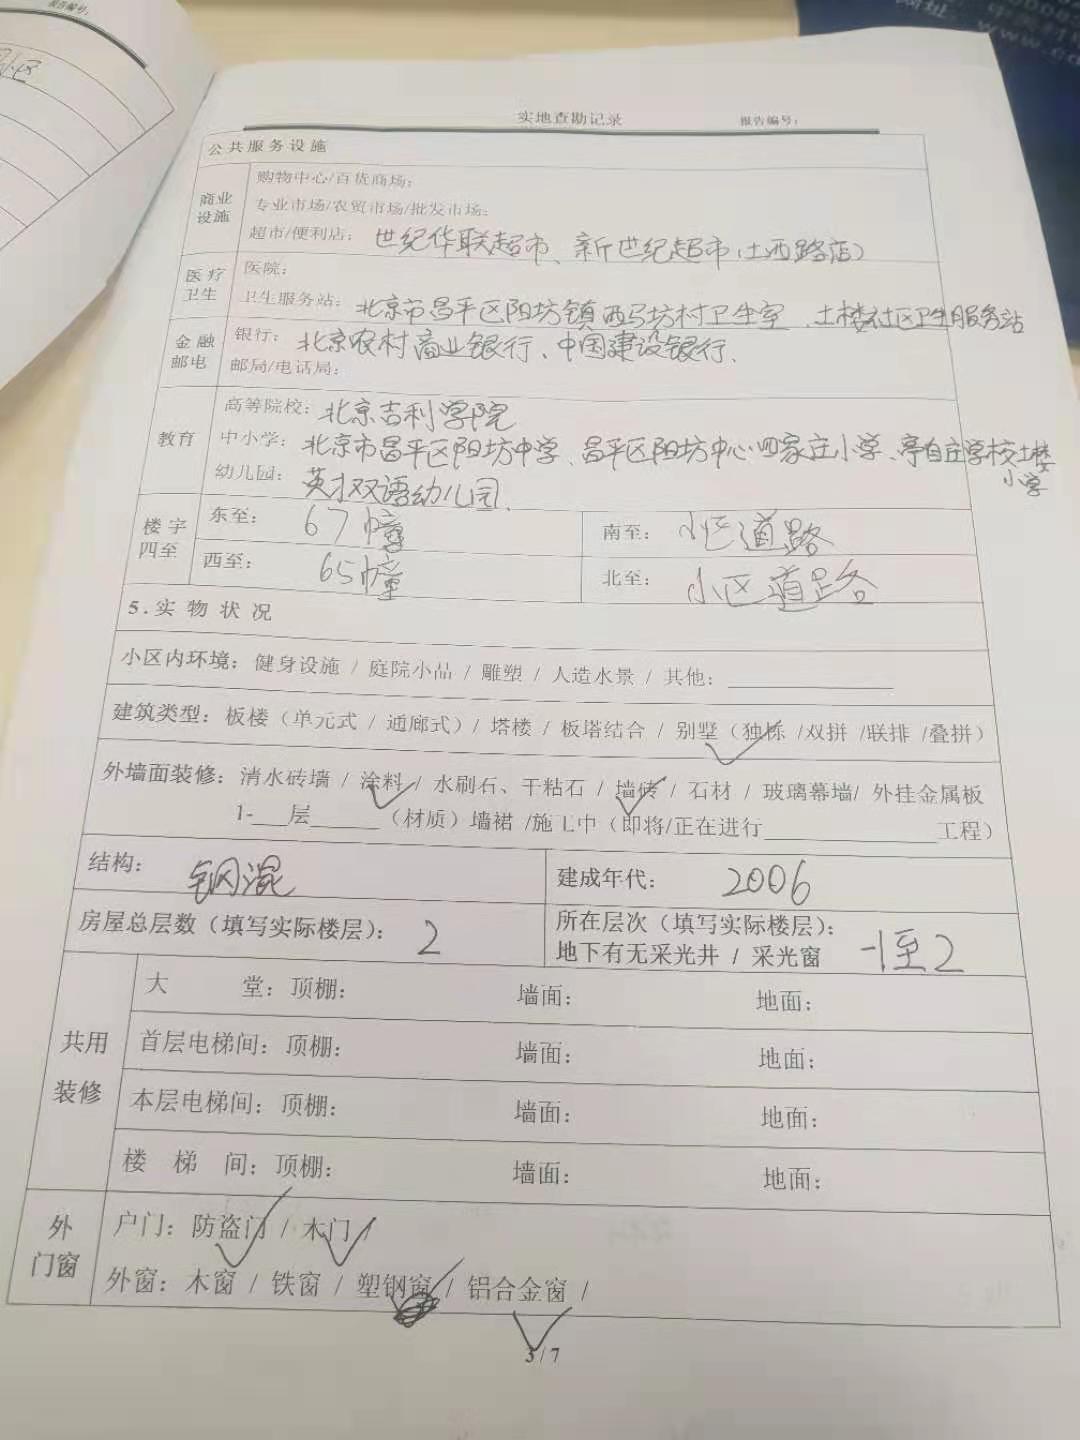 报告编号：
网址：www.cd
实地查勘记录 报告编号：
公共服务设施
商业设施
购物中心/百货商场：
专业市场/农贸市场/批发市场：
超市/便利店：世纪华联超市、新世纪超市（土西路店）
医疗卫生
医院：
卫生服务站：北京市昌平区阳坊镇西马坊村卫生室、土楼社区卫生服务站
金融邮电
银行：北京农村商业银行、中国建设银行、
邮局/电话局：
教育
高等院校：北京吉利学院
中小学：北京市昌平区阳坊中学、昌平区阳坊中心四家庄小学、亭自庄学校土楼小学
幼儿园：英才双语幼儿园、
楼宇四至
东至：67幢 南至：小区道路
西至：65幢 北至：小区道路
5.实物状况
小区内环境：健身设施 / 庭院小品 / 雕塑 / 人造水景 / 其他：
建筑类型：板楼（单元式 / 通廊式）/ 塔楼 / 板塔结合 / 别墅（独栋 /双拼 /联排 /叠拼）
外墙面装修：清水砖墙 / 涂料 / 水刷石、干粘石 / 墙砖 / 石材 / 玻璃幕墙/ 外挂金属板
1-___层______（材质）墙裙 /施工中（即将/正在进行_______________工程）
结构：钢混 建成年代：2006
房屋总层数（填写实际楼层）：2 所在层次（填写实际楼层）：
地下有无采光井 / 采光窗 -1至2
共用装修
大堂：顶棚： 墙面： 地面：
首层电梯间：顶棚： 墙面： 地面：
本层电梯间：顶棚： 墙面： 地面：
楼梯间：顶棚： 墙面： 地面：
外门窗
户门：防盗门 / 木门 /
外窗：木窗 / 铁窗 / 塑钢窗 / 铝合金窗 /
3/7